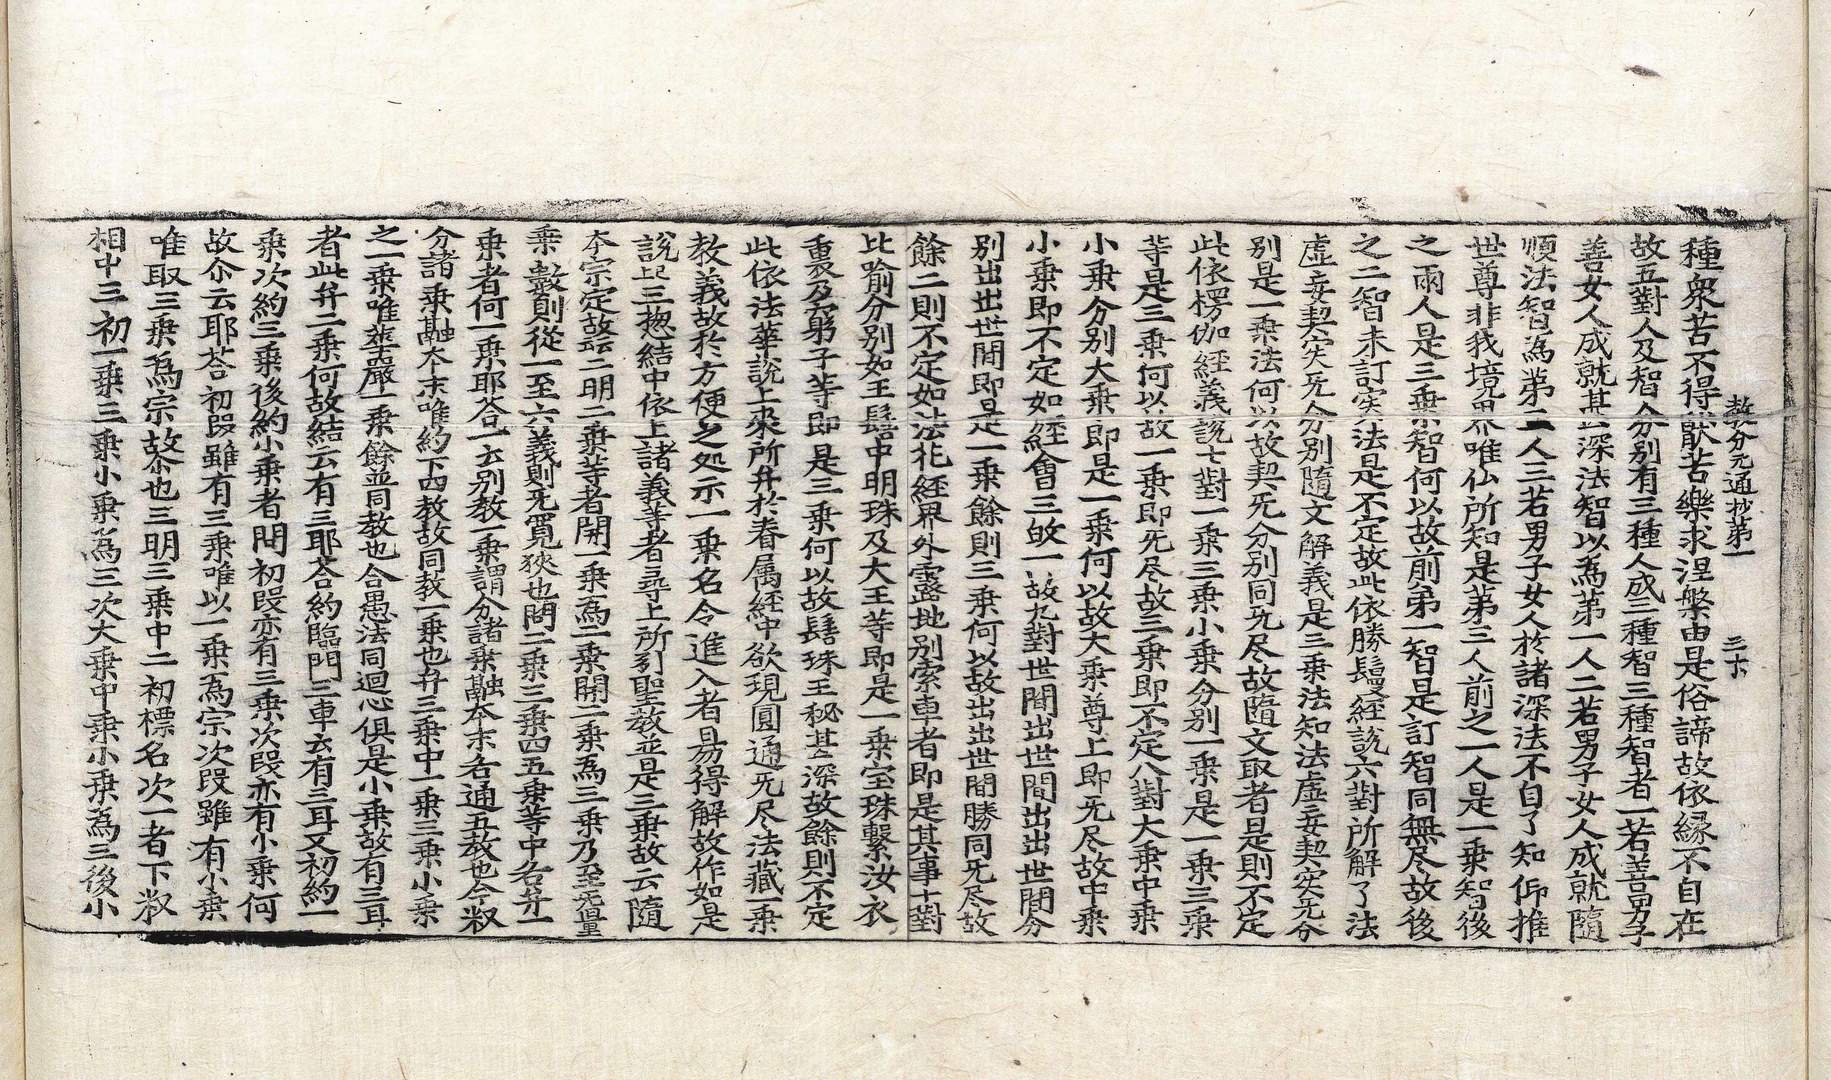 教分元通抄第一　三十
種衆苦不得猒苦樂求涅槃由是俗諦故依縁不自在
故五對人及智分別有三種人成三種智三種智者一若善男子
善女人成就甚深法智以為第一人二若男子女人成就隨
順法智為第二人三若男子女人於諸深法不自了知仰推
世尊非我境界唯仏所知是第三人前之一人是一乗智後
之兩人是三乗智何以故前第一智是訂智同無尽故後
之二智未訂实法是不定故此依勝鬘經說六對所解了法
虛妄契实旡分別隨文解義是三乗法知法虛妄契实旡分
別是一乗法何以故契旡分別同旡尽故隨文取者是則不定
此依楞伽經義說七對一乗三乗小乗分別一乗是一乗三乗
等是三乗何以故一乗即旡尽故三乗即不定八對大乗中乗
小乗分別大乗即是一乗何以故大乗尊上即旡尽故中乗
小乗即不定如經會三故一故九對世間出世間出出世間分
別出出世間即是一乗餘則三乗何以故出出世間勝同旡尽故
餘二則不定如法花經界外露地別索車者即是其事十對
比喻分別如王髻中明珠及大王等即是一乗宝珠繫汝衣
裏及窮子等即是三乗何以故髻珠王秘甚深故餘則不定
此依法華說上來所弁於眷属經中欲現圓通旡尽法藏一乗
教義故於方便之処示一乗名令進入者易得解故作如是
說已三揔結中依上諸義等者尋上所引聖教並是三乗故云隨
本宗定故云二明二乗等者開一乗為二乗開二乗為三乗乃至旡量
乗數則從一至六義則旡寬狹也問二乗三乗四五乗等中各弁一
乗者何一乗耶荅一云別教一乗謂分諸乗融本末各通五教也今叙
分諸乗融本末唯約下四教故同教一乗也弁三乗中一乗三乗小乗
之一乗唯華嚴一乗餘並同教也合愚法同迴心俱是小乗故有三耳
者此弁二乗何故結云有三耶荅約臨門三車云有三耳又初約一
乗次約三乗後約小乗者問初段亦有三乗次段亦有小乗何
故尒云耶荅初段雖有三乗唯以一乗為宗次段雖有小乗
唯取三乗為宗故尒也三明三乗中二初標名次一者下叙
相中三初一乗三乗小乗為三次大乗中乗小乗為三後小